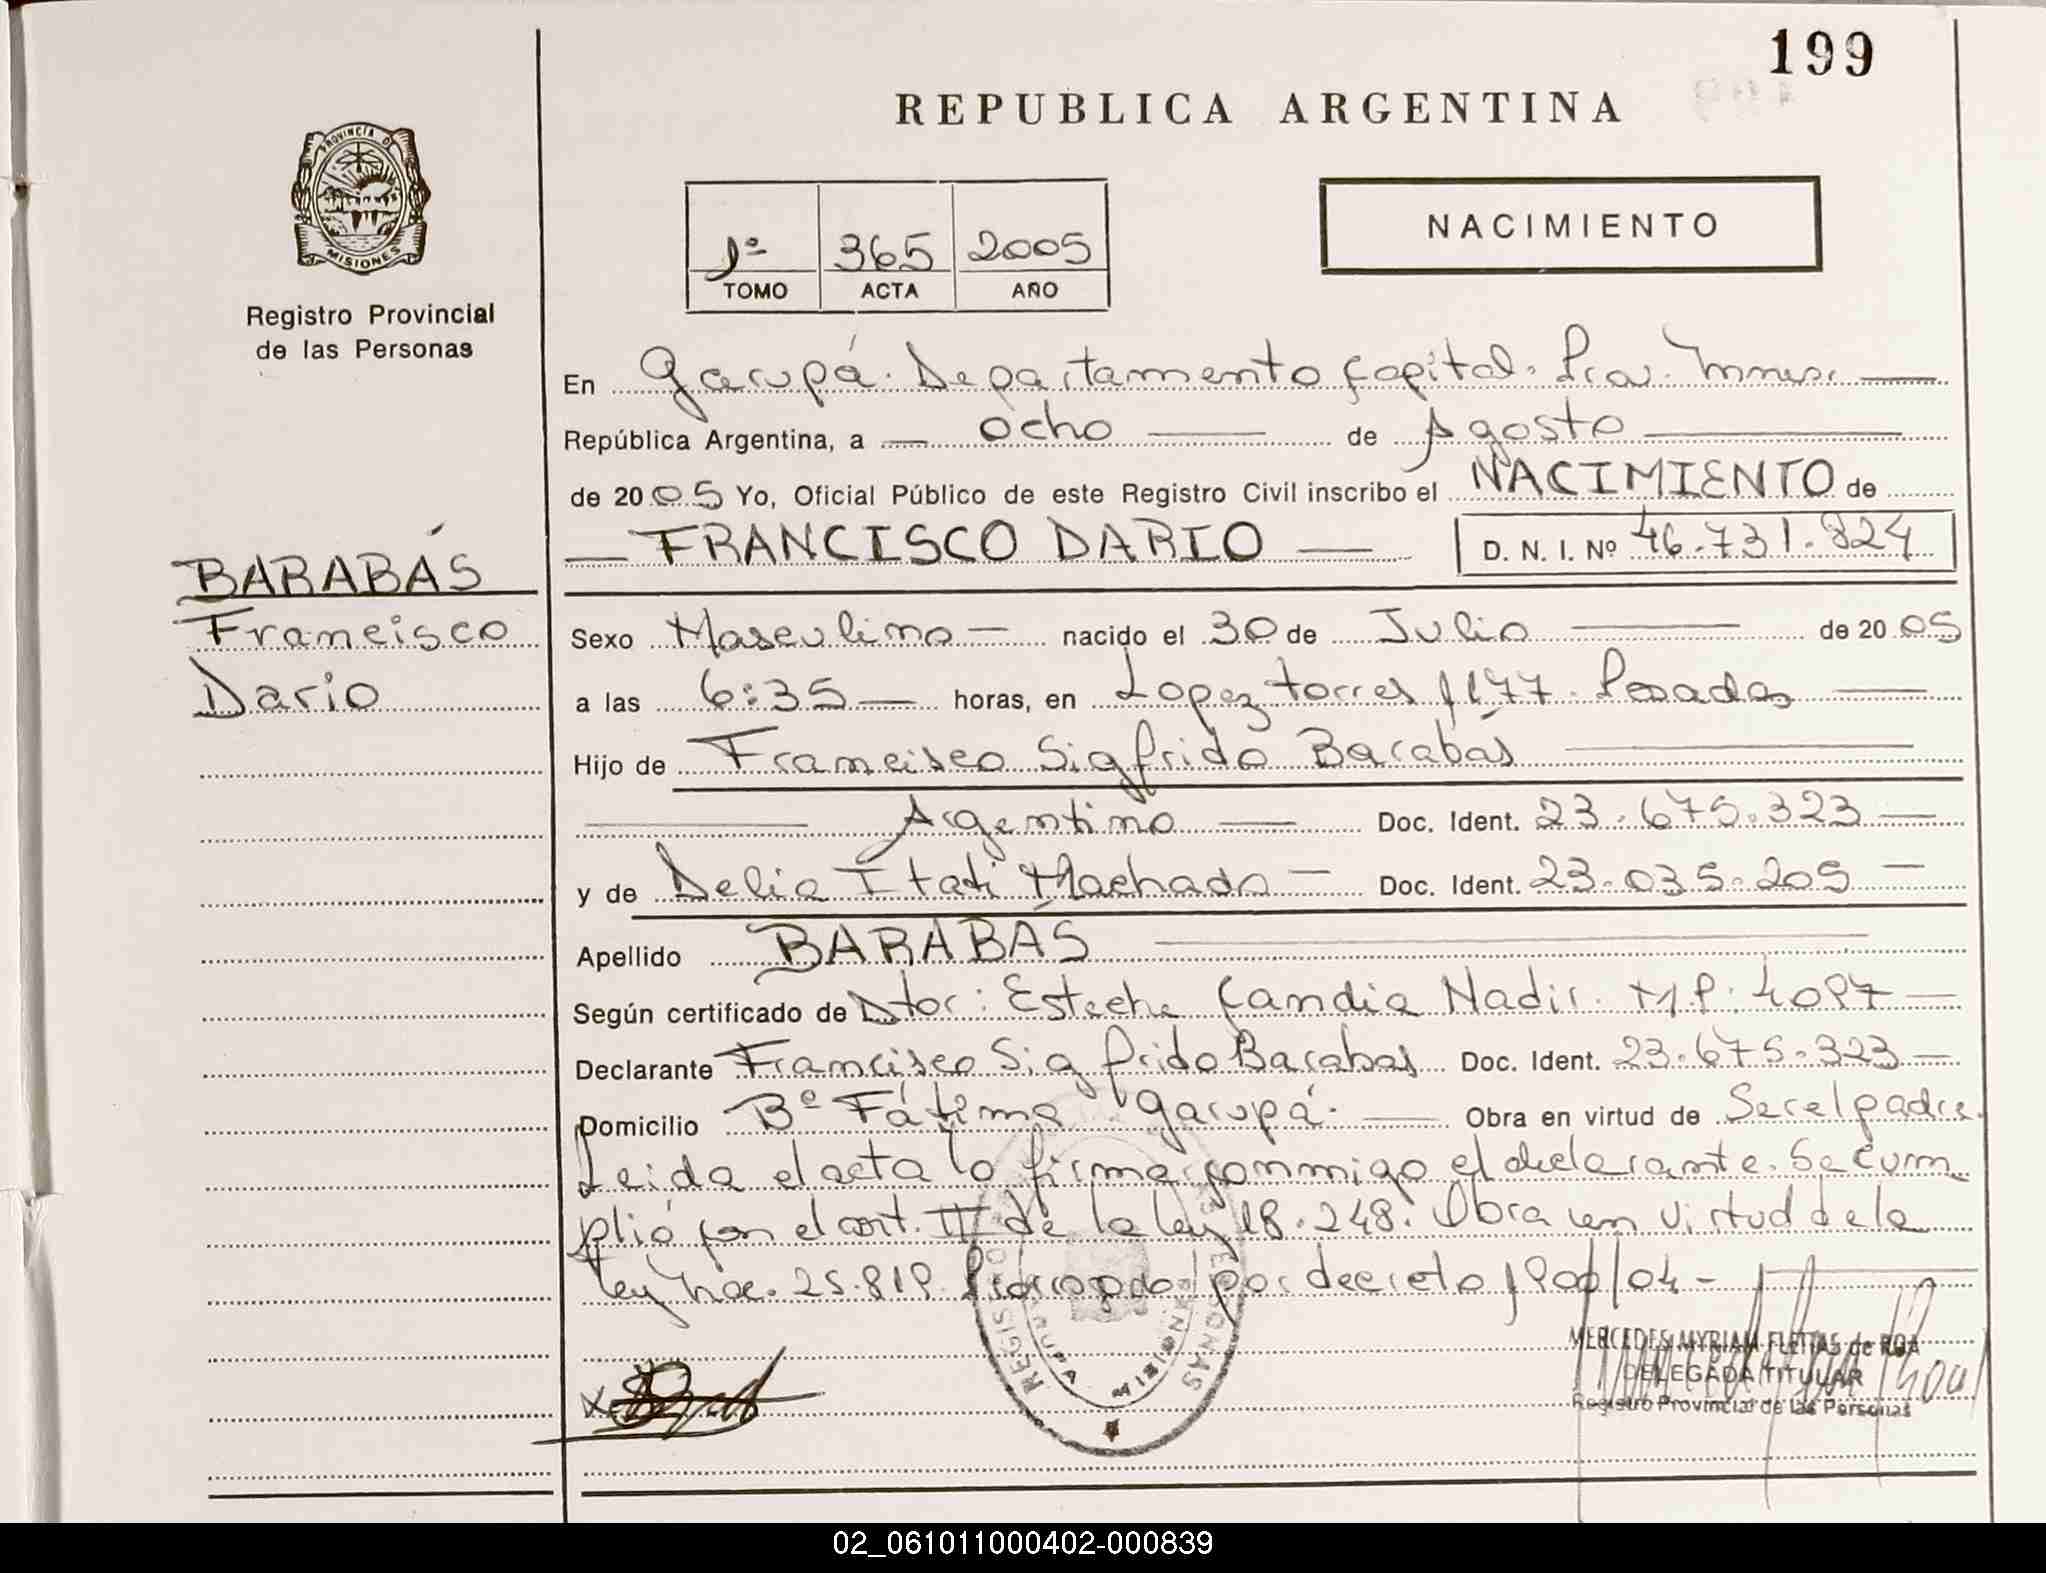 199
REPUBLICA ARGENTINA
PROVINCIA DE
MISIONES
Registro Provincial
de las Personas
1º 365 2005
TOMO ACTA AÑO
NACIMIENTO
En Garupá. Departamento Capital. Prov. Mnes.
República Argentina, a ocho de Agosto
de 2005 Yo, Oficial Público de este Registro Civil inscribo el NACIMIENTO de
FRANCISCO DARIO D. N. I. Nº 46.731.824
BARABÁS
Francisco
Dario
Sexo Masculino nacido el 30 de Julio de 2005
a las 6:35 horas, en Lopez torres 1177. Posadas
Hijo de Francisco Sigfrido Barabás
Argentino Doc. Ident. 23.675.323
y de Delia Itati Machado Doc. Ident. 23.035.205
Apellido BARABÁS
Según certificado de Dtor: Esteche Candia Nadir. M.P: 4097
Declarante Francisco Sigfrido Barabas Doc. Ident. 23.675.323
Domicilio Bº Fátima Garupá. Obra en virtud de Ser el padre.
Leida el acta la firma conmigo el declarante. Se cum
plió con el art. II de la ley 18.248. Obra en virtud de la
ley nac. 25.819. Prorrogado por decreto 1900/04-
MERCEDES MYRIAM FLEITAS de ROA
DELEGADA TITULAR
Registro Provincial de las Personas
02_061011000402-000839